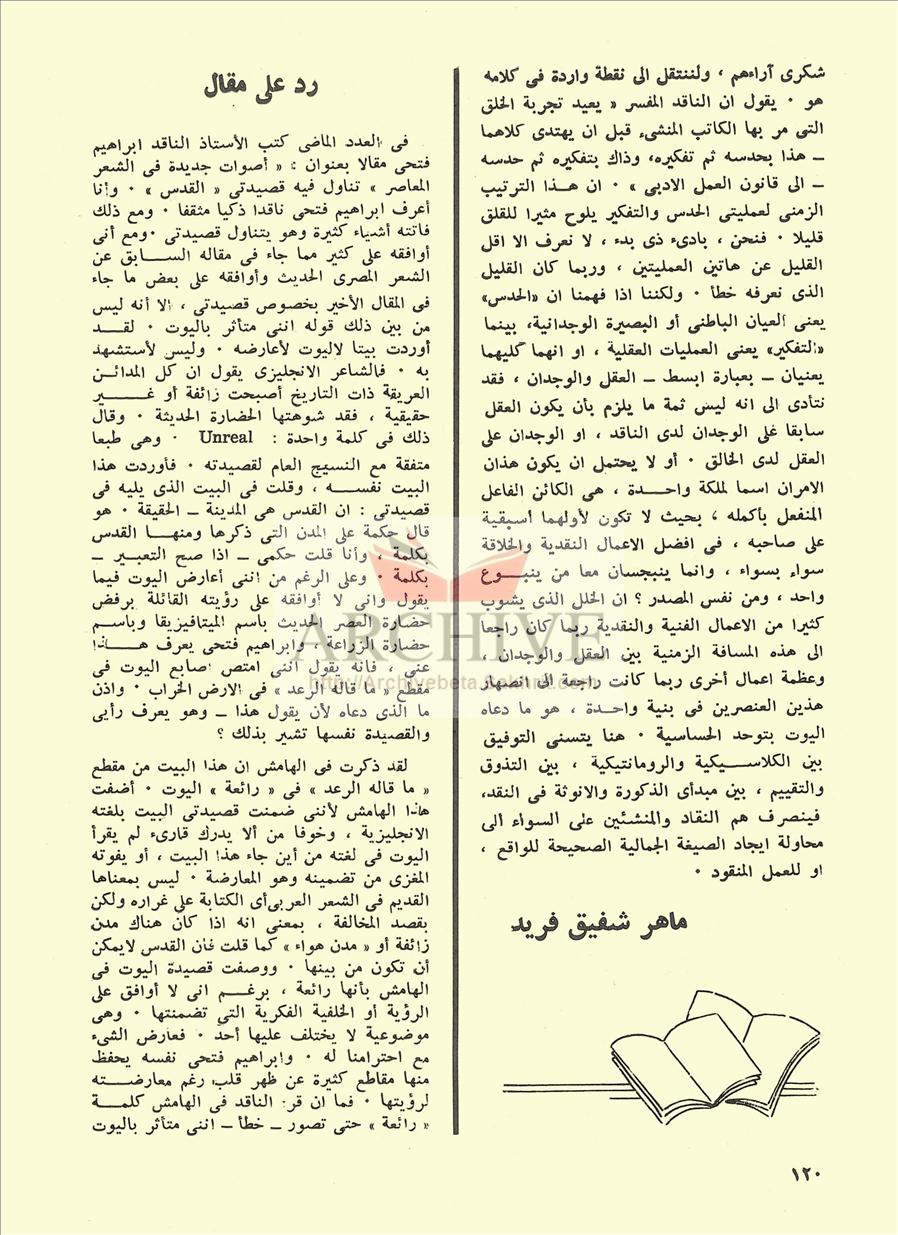 شكرى آراءهم ، ولننتقل الى نقطة واردة فى كلامه
هو ٠ يقول ان الناقد المفسر « يعيد تجربة الخلق
التى مر بها الكاتب المنشىء قبل ان يهتدى كلاهما
ــ هذا بحدسه ثم تفكيره، وذاك بتفكيره ثم حدسه
ــ الى قانون العمل الادبى » ٠ ان هــذا الترتيب
الزمنى لعمليتى الحدس والتفكير يلوح مثيرا للقلق
قليلا ٠ فنحن ، بادىء ذى بدء ، لا نعرف الا اقل
القليل عن هاتين العمليتين ، وربما كان القليل
الذى نعرفه خطأ ٠ ولكننا اذا فهمنا ان «الحدس»
يعنى العيان الباطنى أو البصيرة الوجدانية، بينما
«التفكير» يعنى العمليات العقلية ، او انهما كليهما
يعنيان ــ بعبارة ابسط ــ العقل والوجدان ، فقد
نتأدى الى انه ليس ثمة ما يلزم بأن يكون العقل
سابقا على الوجدان لدى الناقد ، او الوجدان على
العقل لدى الخالق ٠ أو لا يحتمل ان يكون هذان
الامران اسما لملكة واحــدة ، هى الكائن الفاعل
المنفعل بأكمله ، بحيث لا تكون لأولهما أسبقية
على صاحبه ، فى افضل الاعمال النقدية والخلاقة
سواء بسواء ، وانما ينبجسان معا من ينبــوع
واحد ، ومن نفس المصدر ؟ ان الخلل الذى يشوب
كثيرا من الاعمال الفنية والنقدية ربما كان راجعا
الى هذه المسافة الزمنية بين العقل والوجدان ،
وعظمة اعمال أخرى ربما كانت راجعة الى انصهار
هذين العنصرين فى بنية واحـدة ، هو ما دعاه
اليوت بتوحد الحساسية ٠ هنا يتسنى التوفيق
بين الكلاســيكية والرومانتيكية ، بين التذوق
والتقييم ، بين مبدأى الذكورة والانوثة فى النقد،
فينصرف هم النقاد والمنشئين على السواء الى
محاولة ايجاد الصيغة الجمالية الصحيحة للواقع ،
او للعمل المنقود ٠
ماهر شفيق فريد
رد على مقال
فى العدد الماضى كتب الأستاذ الناقد ابراهيم
فتحى مقالا بعنوان : « أصوات جديدة فى الشعر
المعاصر » تناول فيه قصيدتى « القدس » ٠ وأنا
أعرف ابراهيم فتحى ناقدا ذكيا مثقفا ٠ ومع ذلك
فاتته أشياء كثيرة وهو يتناول قصيدتى ٠ومع أنى
أوافقه على كثير مما جاء فى مقاله الســـابق عن
الشعر المصرى الحديث وأوافقه على بعض ما جاء
فى المقال الأخير بخصوص قصيدتى ، الا أنه ليس
من بين ذلك قوله اننى متأثر باليوت ٠ لقــد
أوردت بيتا لاليوت لأعارضه ٠ وليس لأستشهد
به ٠ فالشاعر الانجليزى يقول ان كل المدائــن
العريقة ذات التاريخ أصبحت زائفة أو غـــير
حقيقية ، فقد شوهتها الحضارة الحديثة ٠ وقال
ذلك فى كلمة واحدة : Unreal ٠ وهى طبعا
متفقة مع النسيج العام لقصيدته ٠ فأوردت هذا
البيت نفســه ، وقلت فى البيت الذى يليه فى
قصيدتى : ان القدس هى المدينة ــ الحقيقة ٠ هو
قال حكمة على المدن التى ذكرها ومنهــا القدس
بكلمة ، وأنا قلت حكمى ــ اذا صح التعبــير ــ
بكلمة ٠ وعلى الرغم من اننى أعارض اليوت فيما
يقول وانى لا أوافقه على رؤيته القائلة برفض
حضارة العصر الحديث باسم الميتافيزيقا وباســم
حضارة الزراعة ، وابراهيم فتحى يعرف هــذا
عنى ، فانه يقول اننى امتص اصابع اليوت فى
مقطع « ما قاله الرعد » فى الارض الخراب ٠ واذن
ما الذى دعاه لأن يقول هذا ــ وهو يعرف رأيى
والقصيدة نفسها تشير بذلك ؟
لقد ذكرت فى الهامش ان هذا البيت من مقطع
« ما قاله الرعد » فى « رائعة » اليوت ٠ أضفت
هذا الهامش لأننى ضمنت قصيدتى البيت بلغته
الانجليزية ، وخوفا من ألا يدرك قارىء لم يقرأ
اليوت فى لغته من أين جاء هذا البيت ، أو يفوته
المغزى من تضمينه وهو المعارضة ٠ ليس بمعناها
القديم فى الشعر العربى أى الكتابة على غراره ولكن
بقصد المخالفة ، بمعنى انه اذا كان هناك مدن
زائفة أو « مدن هواء » كما قلت فان القدس لايمكن
أن تكون من بينها ٠ ووصفت قصيدة اليوت فى
الهامش بأنها رائعة ، برغــم انى لا أوافق على
الرؤية أو الخلفية الفكرية التى تضمنتها ٠ وهى
موضوعية لا يختلف عليها أحد ٠ فعارض الشىء
مع احترامنا له ٠ وابراهيم فتحى نفسه يحفظ
منها مقاطع كثيرة عن ظهر قلب رغم معارضــته
لرؤيتها ٠ فما ان قرأ الناقد فى الهامش كلمــة
« رائعة » حتى تصور ــ خطأ ــ اننى متأثر باليوت
١٢٠
ARCHIVE
http://Archivebeta.Sakhrit.com